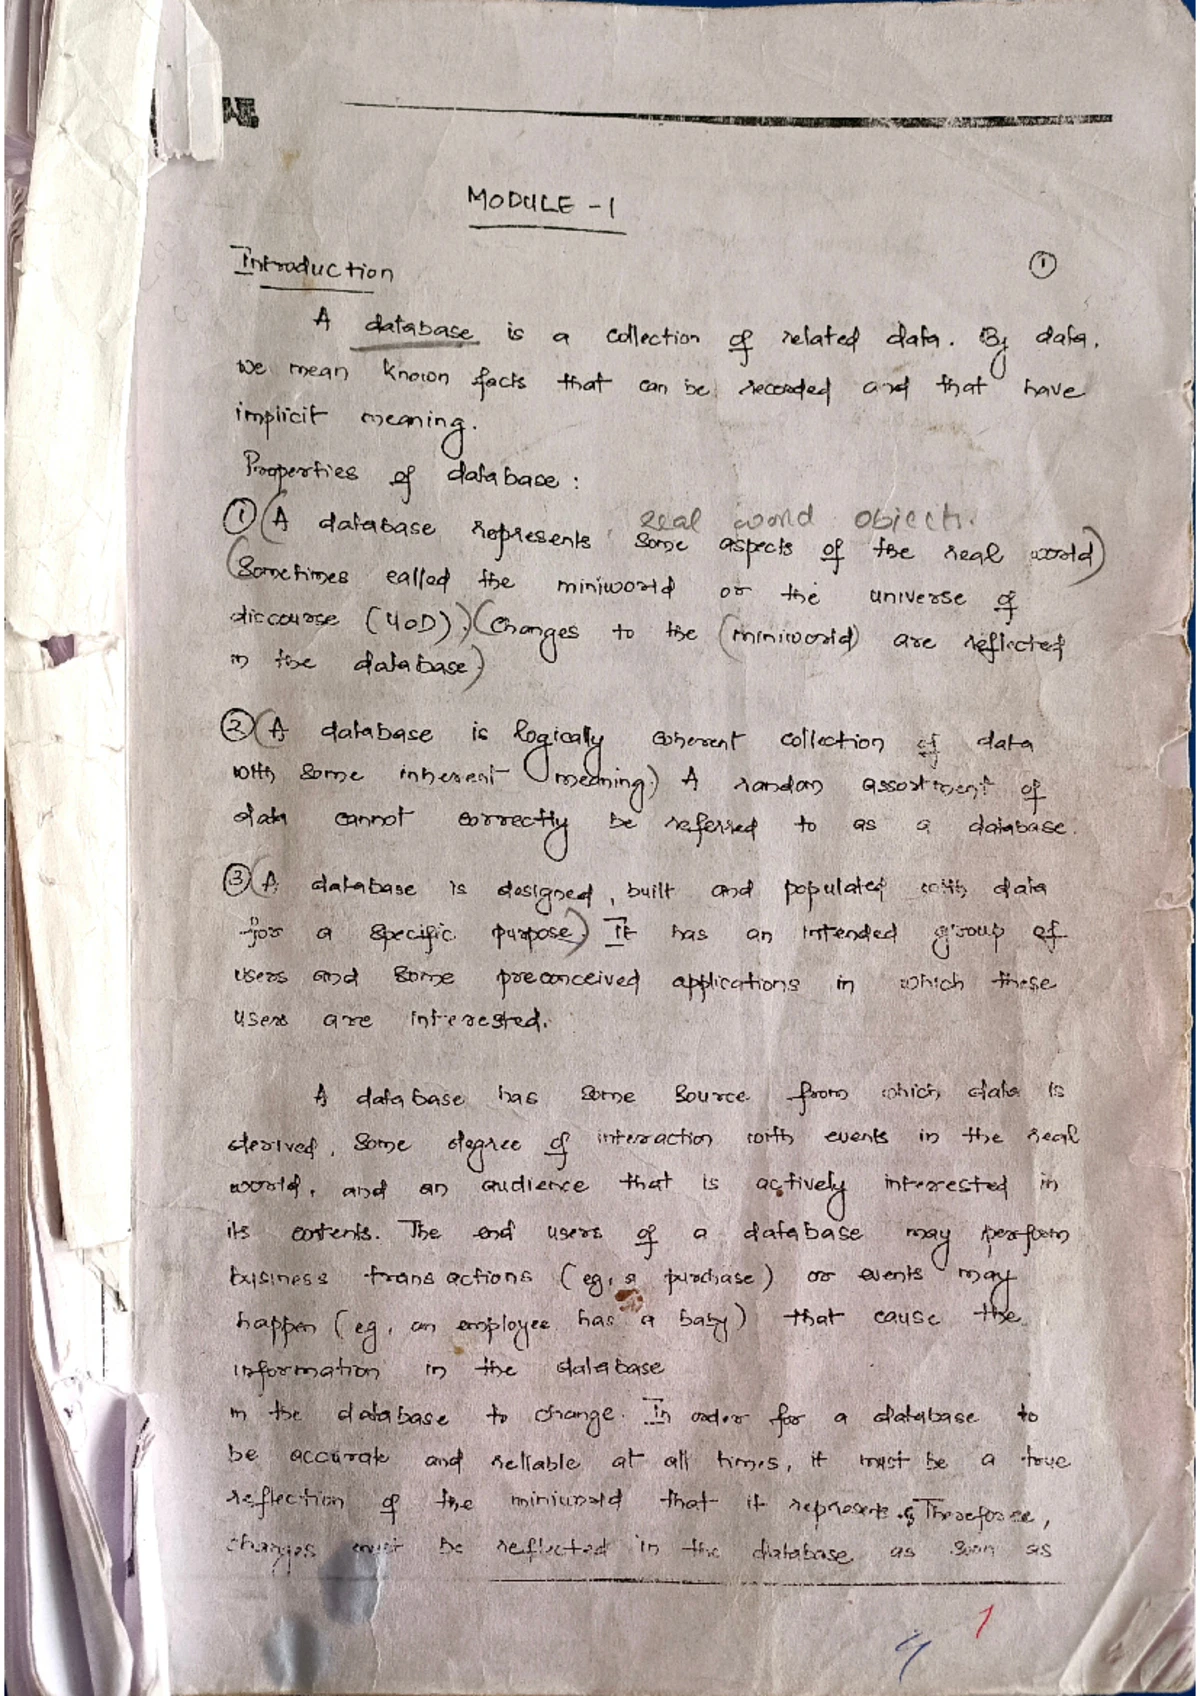 MODULE - 1
Introduction
①
A database is a collection of related data. By data,
we mean known facts that can be recorded and that have
implicit meaning.
Properties of database :
real world objects.
① (A database represents some aspects of the real world)
(Sometimes called the miniworld or the universe of
discourse (UOD).) (Changes to the (miniworld) are reflected
in the database)
② (A database is logically coherent collection of data
with some inherent meaning.) A random assortment of
data cannot correctly be referred to as a database.
③ (A database is designed, built and populated with data
for a specific purpose.) It has an intended group of
users and some preconceived applications in which these
users are interested.
A database has some source from which data is
derived, some degree of interaction with events in the real
world, and an audience that is actively interested in
its contents. The end users of a database may perform
business transactions (eg, a purchase) or events may
happen (eg, an employee has a baby) that cause the
information in the database
in the database to change. In order for a database to
be accurate and reliable at all times, it must be a true
reflection of the miniworld that it represents. Therefore,
changes must be reflected in the database as soon as
1